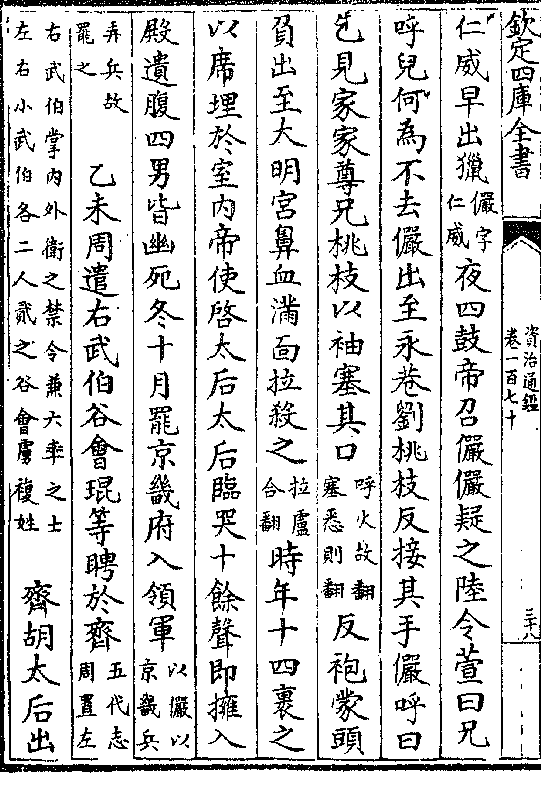 欽定四庫全書
資治通鑑
卷一百七十
三十八
仁威早出獵儼字仁威夜四鼓帝召儼儼疑之陸令萱曰兄
呼兒何為不去儼出至永巷劉桃枝反接其手儼呼曰
乞見家家尊兄桃枝以袖塞其口呼火故翻塞悉則翻反袍蒙頭
負出至大明宮鼻血滿面拉殺之拉盧合翻時年十四裹之
以席埋於室內帝使啓太后太后臨哭十餘聲即擁入
殿遺腹四男皆幽死冬十月罷京畿府入領軍以儼以京畿兵
弄兵故罷之乙未周遣右武伯谷會琨等聘於齊五代志周置左
右武伯掌內外衛之禁令兼六率之士左右小武伯各二人貳之谷會虜複姓齊胡太后出